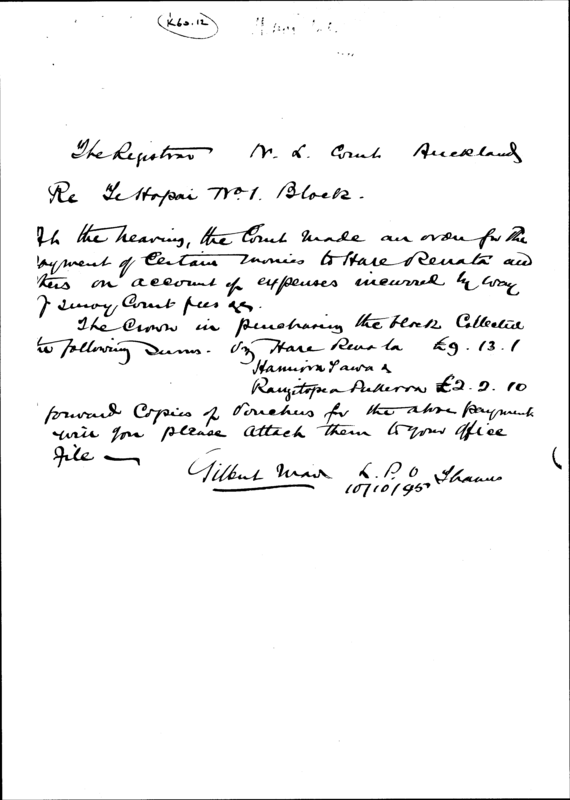 K60.12
The Registrar N. L. Court Auckland
Re Te Hopai No 1. Block.
At the hearing, the Court made an order for the
payment of Certain monies to Hare Renata and
others on account of expenses incurred by way
of survey Court fees &c.
The Crown in purchasing the block Collected
the following Sums. viz Hare Renata £9. 13. 1
Hamiora Tawa &
Rangitopea £2. 2. 10
forward Copies of Vouchers for the above payment
will you please attach them to your office
file —
Gilbert Mair L. P. O
10/10/95 Thames